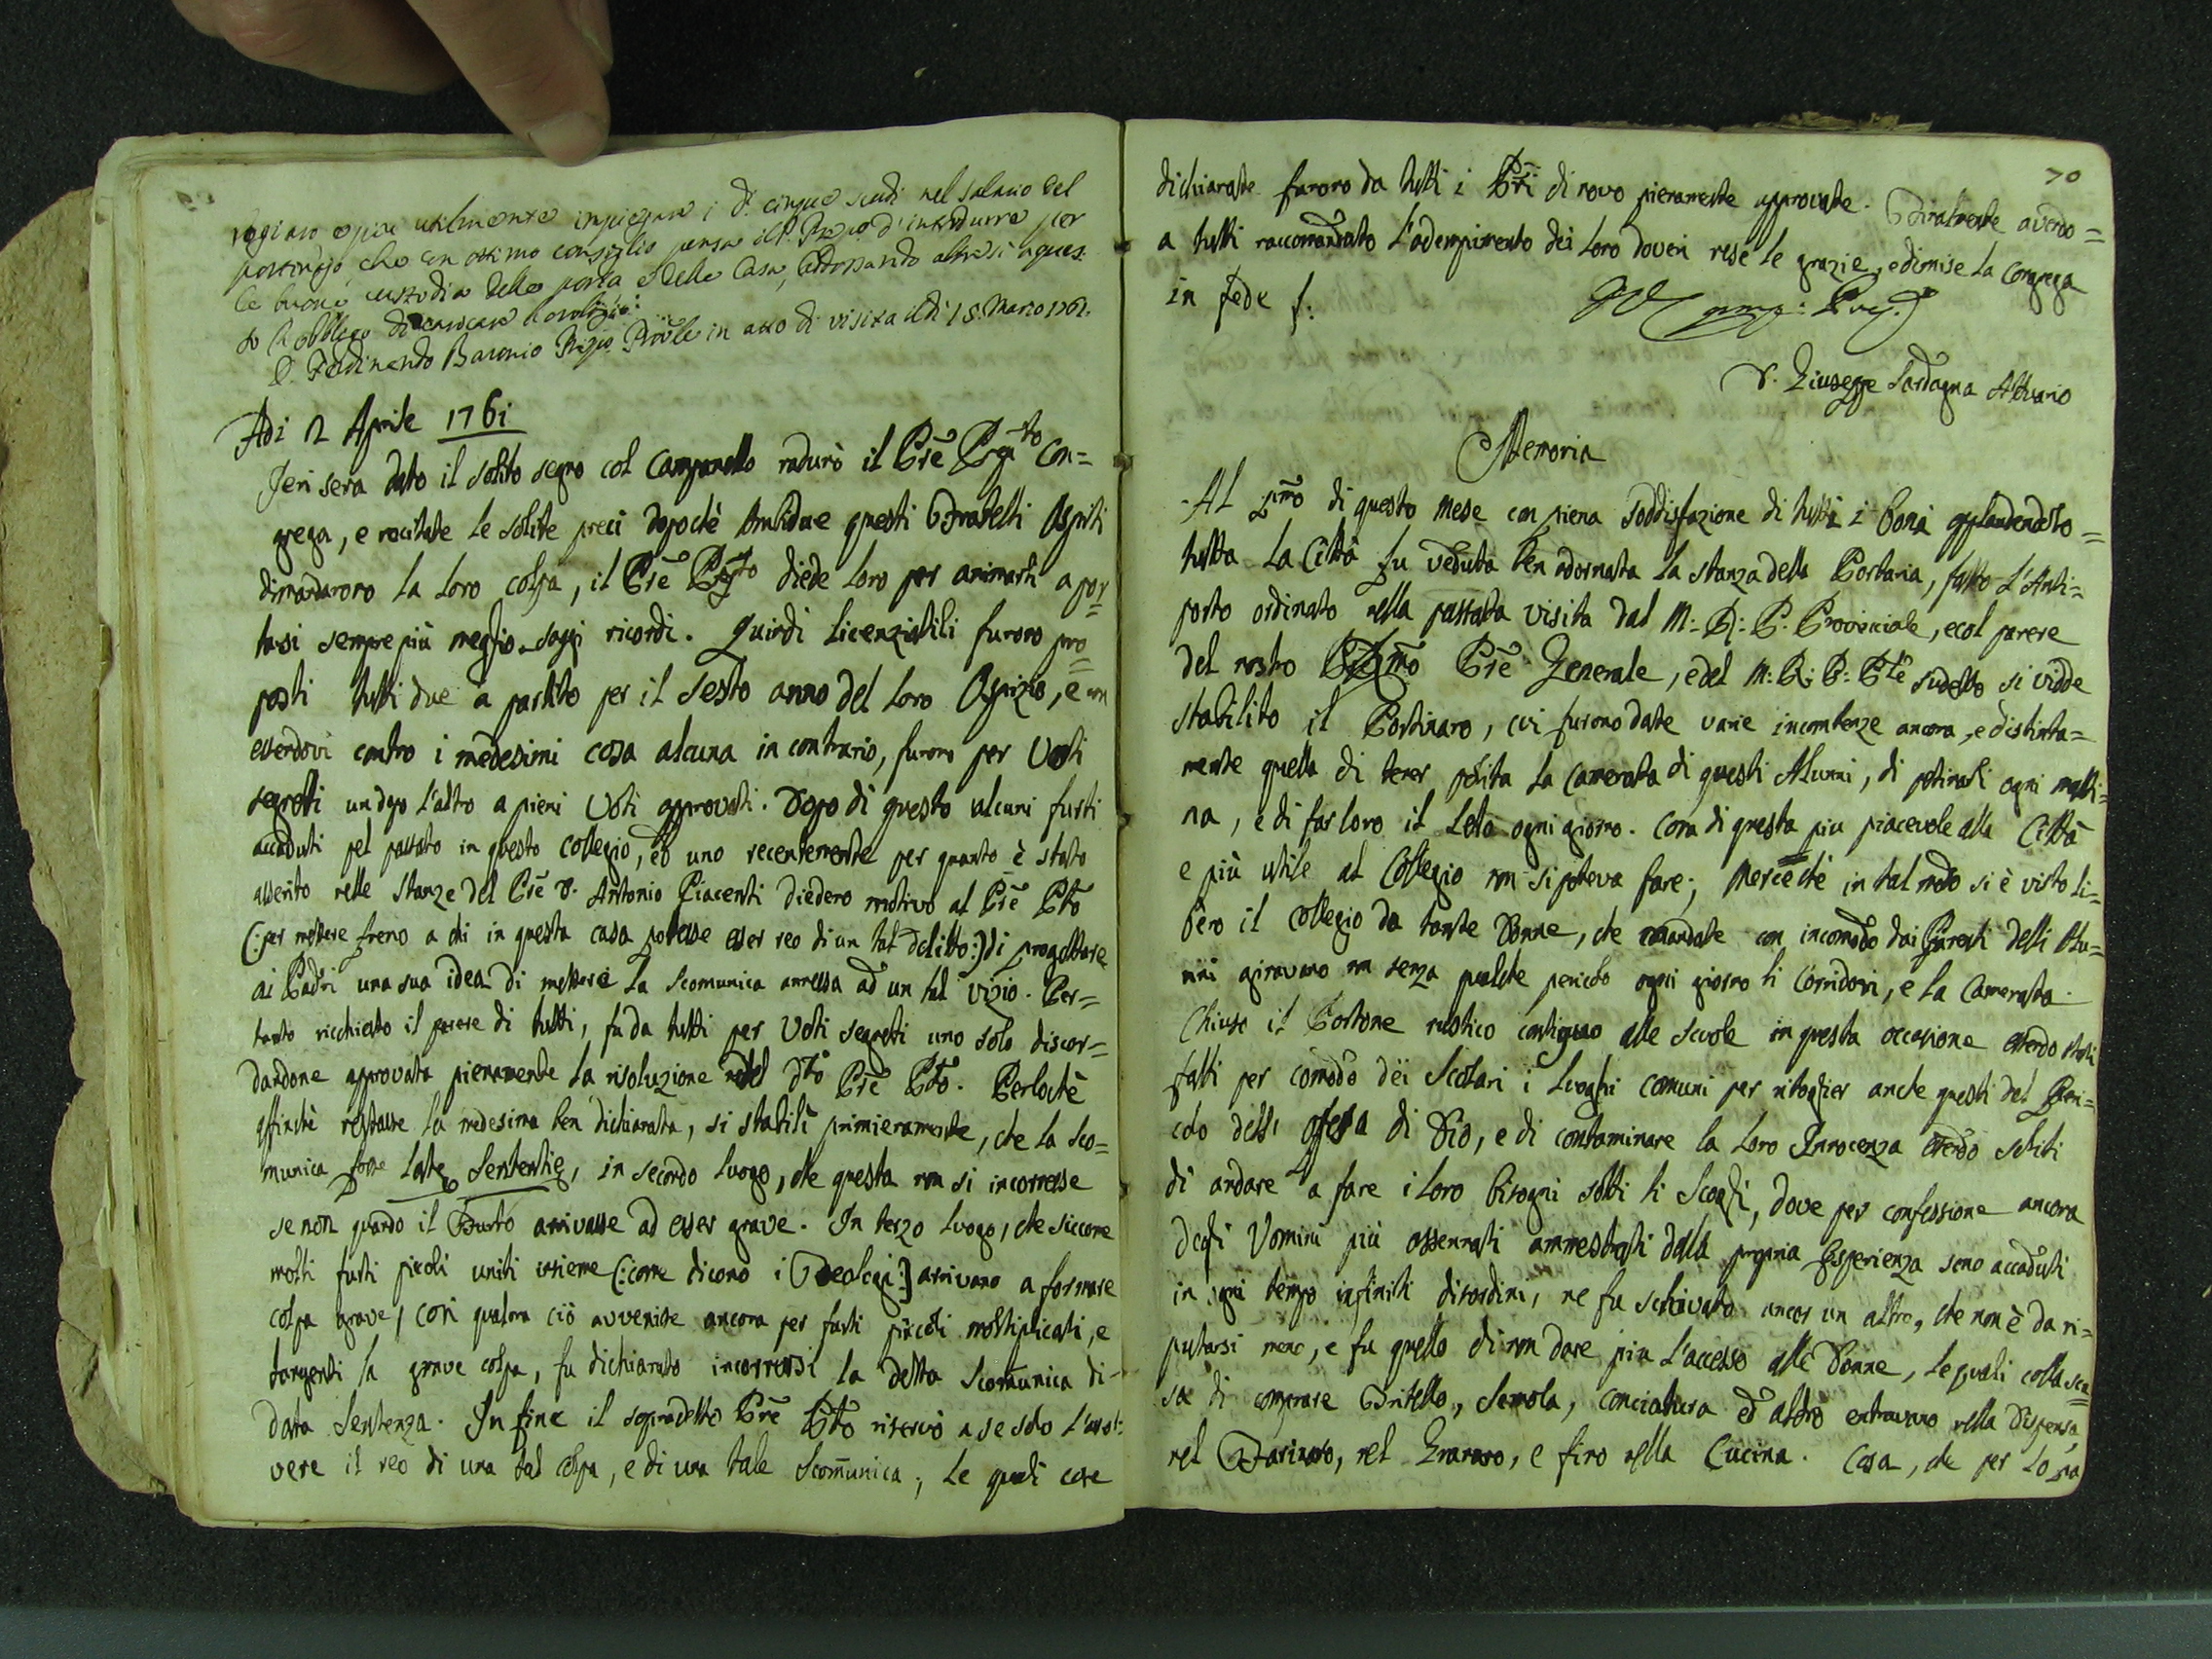 e più utilmente impiegare i d. cinque scudi nel salario del
portinajo, che con ottimo consiglio pensa il P. Prepo. d'introdurre per
la buona custodia della porta e della Casa, addossando altresì a ques-
to l'obbligo di caricare l'orologio.
D. Ferdinando Baronio Prepo. Prov̄le in atto di visita il dì 18. Marzo 1761.
Adi 2 Aprile 1761
Jeri sera dato il solito segno col Campanello radunò il Prē Ppto Con=
grega, e recitate le solite preci dopochè Ambidue questi Fratelli Ospiti
dimandarono la loro colpa, il Prē Ppto diede loro per animarli a por=
tarsi sempre più meglio saggi ricordi. Quindi licenziatili furono pro=
posti tutti due a partito per il Sesto anno del loro Ospizio, e non
essendovi contro i medesimi cosa alcuna in contrario, furono per Voti
segreti un dopo l'altro a pieni Voti approvati. Dopo di questo alcuni furti
accaduti pel passato in questo collegio, ed uno recentemente per quanto è stato
asserito nelle Stanze del Prē D. Antonio Piacenti diedero motivo al Prē Ptō
(: per mettere freno a chi in questa casa potesse esser reo di un tal delitto :) di progettare
ai Padri una sua idea di mettere la Scomunica annessa ad un tal vizio. Per=
tanto ricchiesto il parere di tutti, fu da tutti per Voti segreti uno solo discor=
dandone approvata pienamente la risoluzione del dto Prē Ptō. Perlochè
affinchè restasse la medesima ben dichiarata, si stabilì primieramente, che la Sco=
munica fosse late Sententie, in secondo luogo, che questa non si incorresse
se non quando il Furto arrivasse ad esser grave. In terzo luogo, che siccome
molti furti piccoli uniti insieme (: come dicono i Teologi :) arrivano a formare
colpa grave, così qualora ciò avvenisse ancora per furti piccoli moltiplicati, e
tangenti la grave colpa, fu dichiarato incorrersi la detta Scomunica di
data Sentenza. In fine il sopradetto Prē Ptō riservò a se solo l'assol=
vere il reo di una tal colpa, e di una tale Scom̄unica; le quali cose
70
dichiarate furono da tutti i Pr̄i di novo pienamente approvate. Finalmente avendo=
a tutti raccomandato l'adempimento dei loro doveri rese le grazie, e dimise la Congrega
in fede
D. Giuseppe Sardagna Attuario
Memoria
Al Pmō di questo Mese con piena soddisfazione di tutti i boni applaudendolo=
tutta la Città fu veduta ben adornata la stanza della Portaria, fatto l'Anti=
porto ordinato nella passata visita dal M: R: P: Provinciale, e col parere
del nostro Rmō Prē Generale, e del M: R: P: Ple sudetto si vidde
stabilito il Portinaro, cui furono date varie incombenze ancora, e distinta=
mente quella di tener polita la Camerata di questi Alunni, di petinarli ogni matti=
na, e di far loro il Letto ogni giorno. Cosa di questa piu piacevole alla Città
e più utile al Collegio non si poteva fare; Mercechè in tal modo si è visto li=
bero il Collegio da tante Donne, che mandate con incomodo dai Parenti delli Alu=
nni giravano non senza qualche pericolo ogni giorno li Corridori, e la Camerata.
Chiuso il Portone rustico contiguo alle Scuole in questa occasione essendo stati
fatti per comodo dei Scolari i Luoghi comuni per ritoglier anche questi dal Peri=
colo dell' offesa di Dio, e di contaminare la loro Innocenza essendo soliti
di andare a fare i loro bisogni sotti li Scogli, dove per confessione ancora
degli Uomini più assennati ammestrati dalla propria Esperienza sono accaduti
in ogni tempo infiniti disordini, ne fu schivato ancor un altro, che non è da ri=
putarsi meno, e fu quello di non dare piu l'accesso alle Donne, le quali colla scu=
sa di comprare Tritello, Semola, Conciatura ed altro entravano nella Dispensa,
nel Farinaro, nel Granaro, e fino nella Cucina. Cosa, che per lo pa